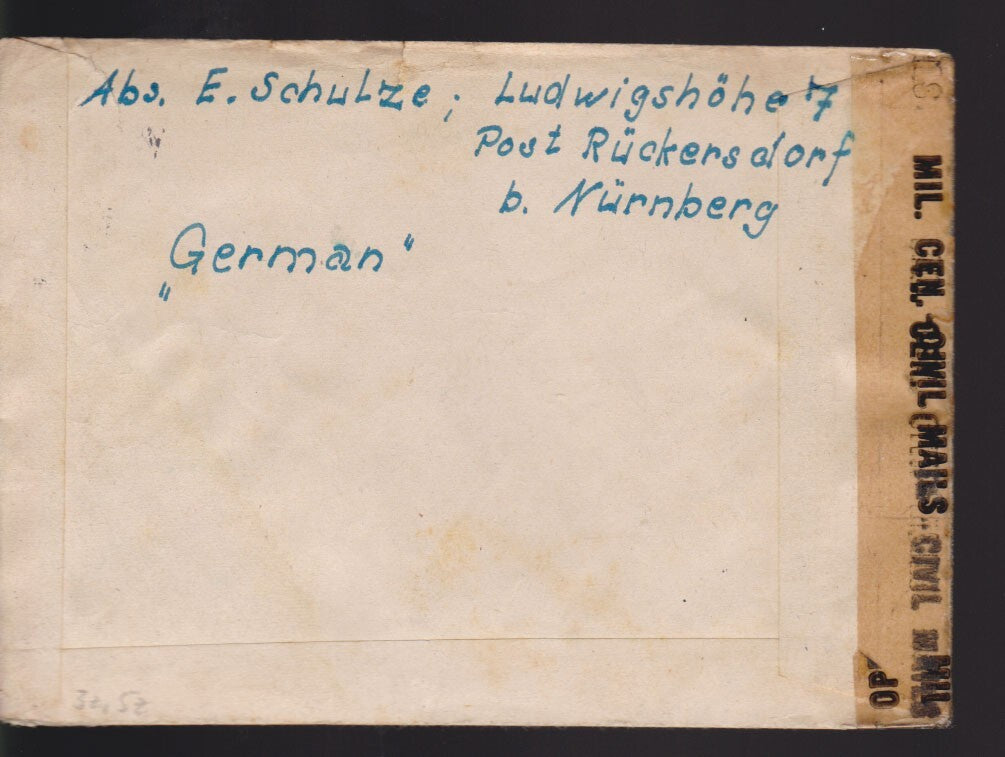 Abs. E. Schulze; Ludwigshöhe 7
Post Rückersdorf
b. Nürnberg
„German“
MIL. CEN. CIVIL MAILS CIVIL
OP
3z, 5z